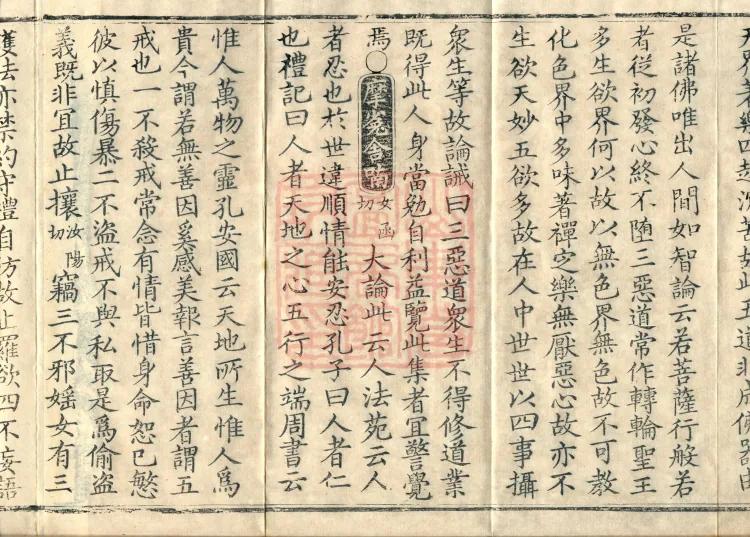 天界著樂四趣沈苦如此五道非成佛器由
是諸佛唯出人間如智論云若菩薩行般若
者從初發心終不墮三惡道常作轉輪聖王
多生欲界何以故以無色界無色故不可教
化色界中多味著禪定樂無厭惡心故亦不
生欲天妙五欲多故在人中世世以四事攝
衆生等故論誡曰三惡道衆生不得修道業
既得此人身當勉自利益覽此集者宜警覺
焉○摩㝹舍喃女函切大論此云人法苑云人
者忍也於世違順情能安忍孔子曰人者仁
也禮記曰人者天地之心五行之端周書云
惟人萬物之靈孔安國云天地所生惟人爲
貴今謂若無善因奚感美報言善因者謂五
戒也一不殺戒常念有情皆惜身命恕已慜
彼以慎傷暴二不盜戒不與私取是爲偷盜
義既非宜故止攘汝陽切竊三不邪婬女有三
護法亦禁約守禮自防故止羅欲四不妄語